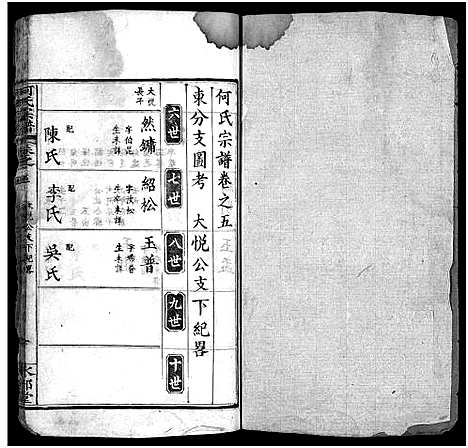 何氏宗譜卷之五
東分支圖考 大悅公支下紀畧
六世
七世
八世
九世
十世
大悅
長子
然鏞
字伯
生未詳
配
陳氏
紹松
字汝松
生卒未詳
配
李氏
玉普
生未詳
配
吳氏
何氏宗譜
大悅公支下紀畧